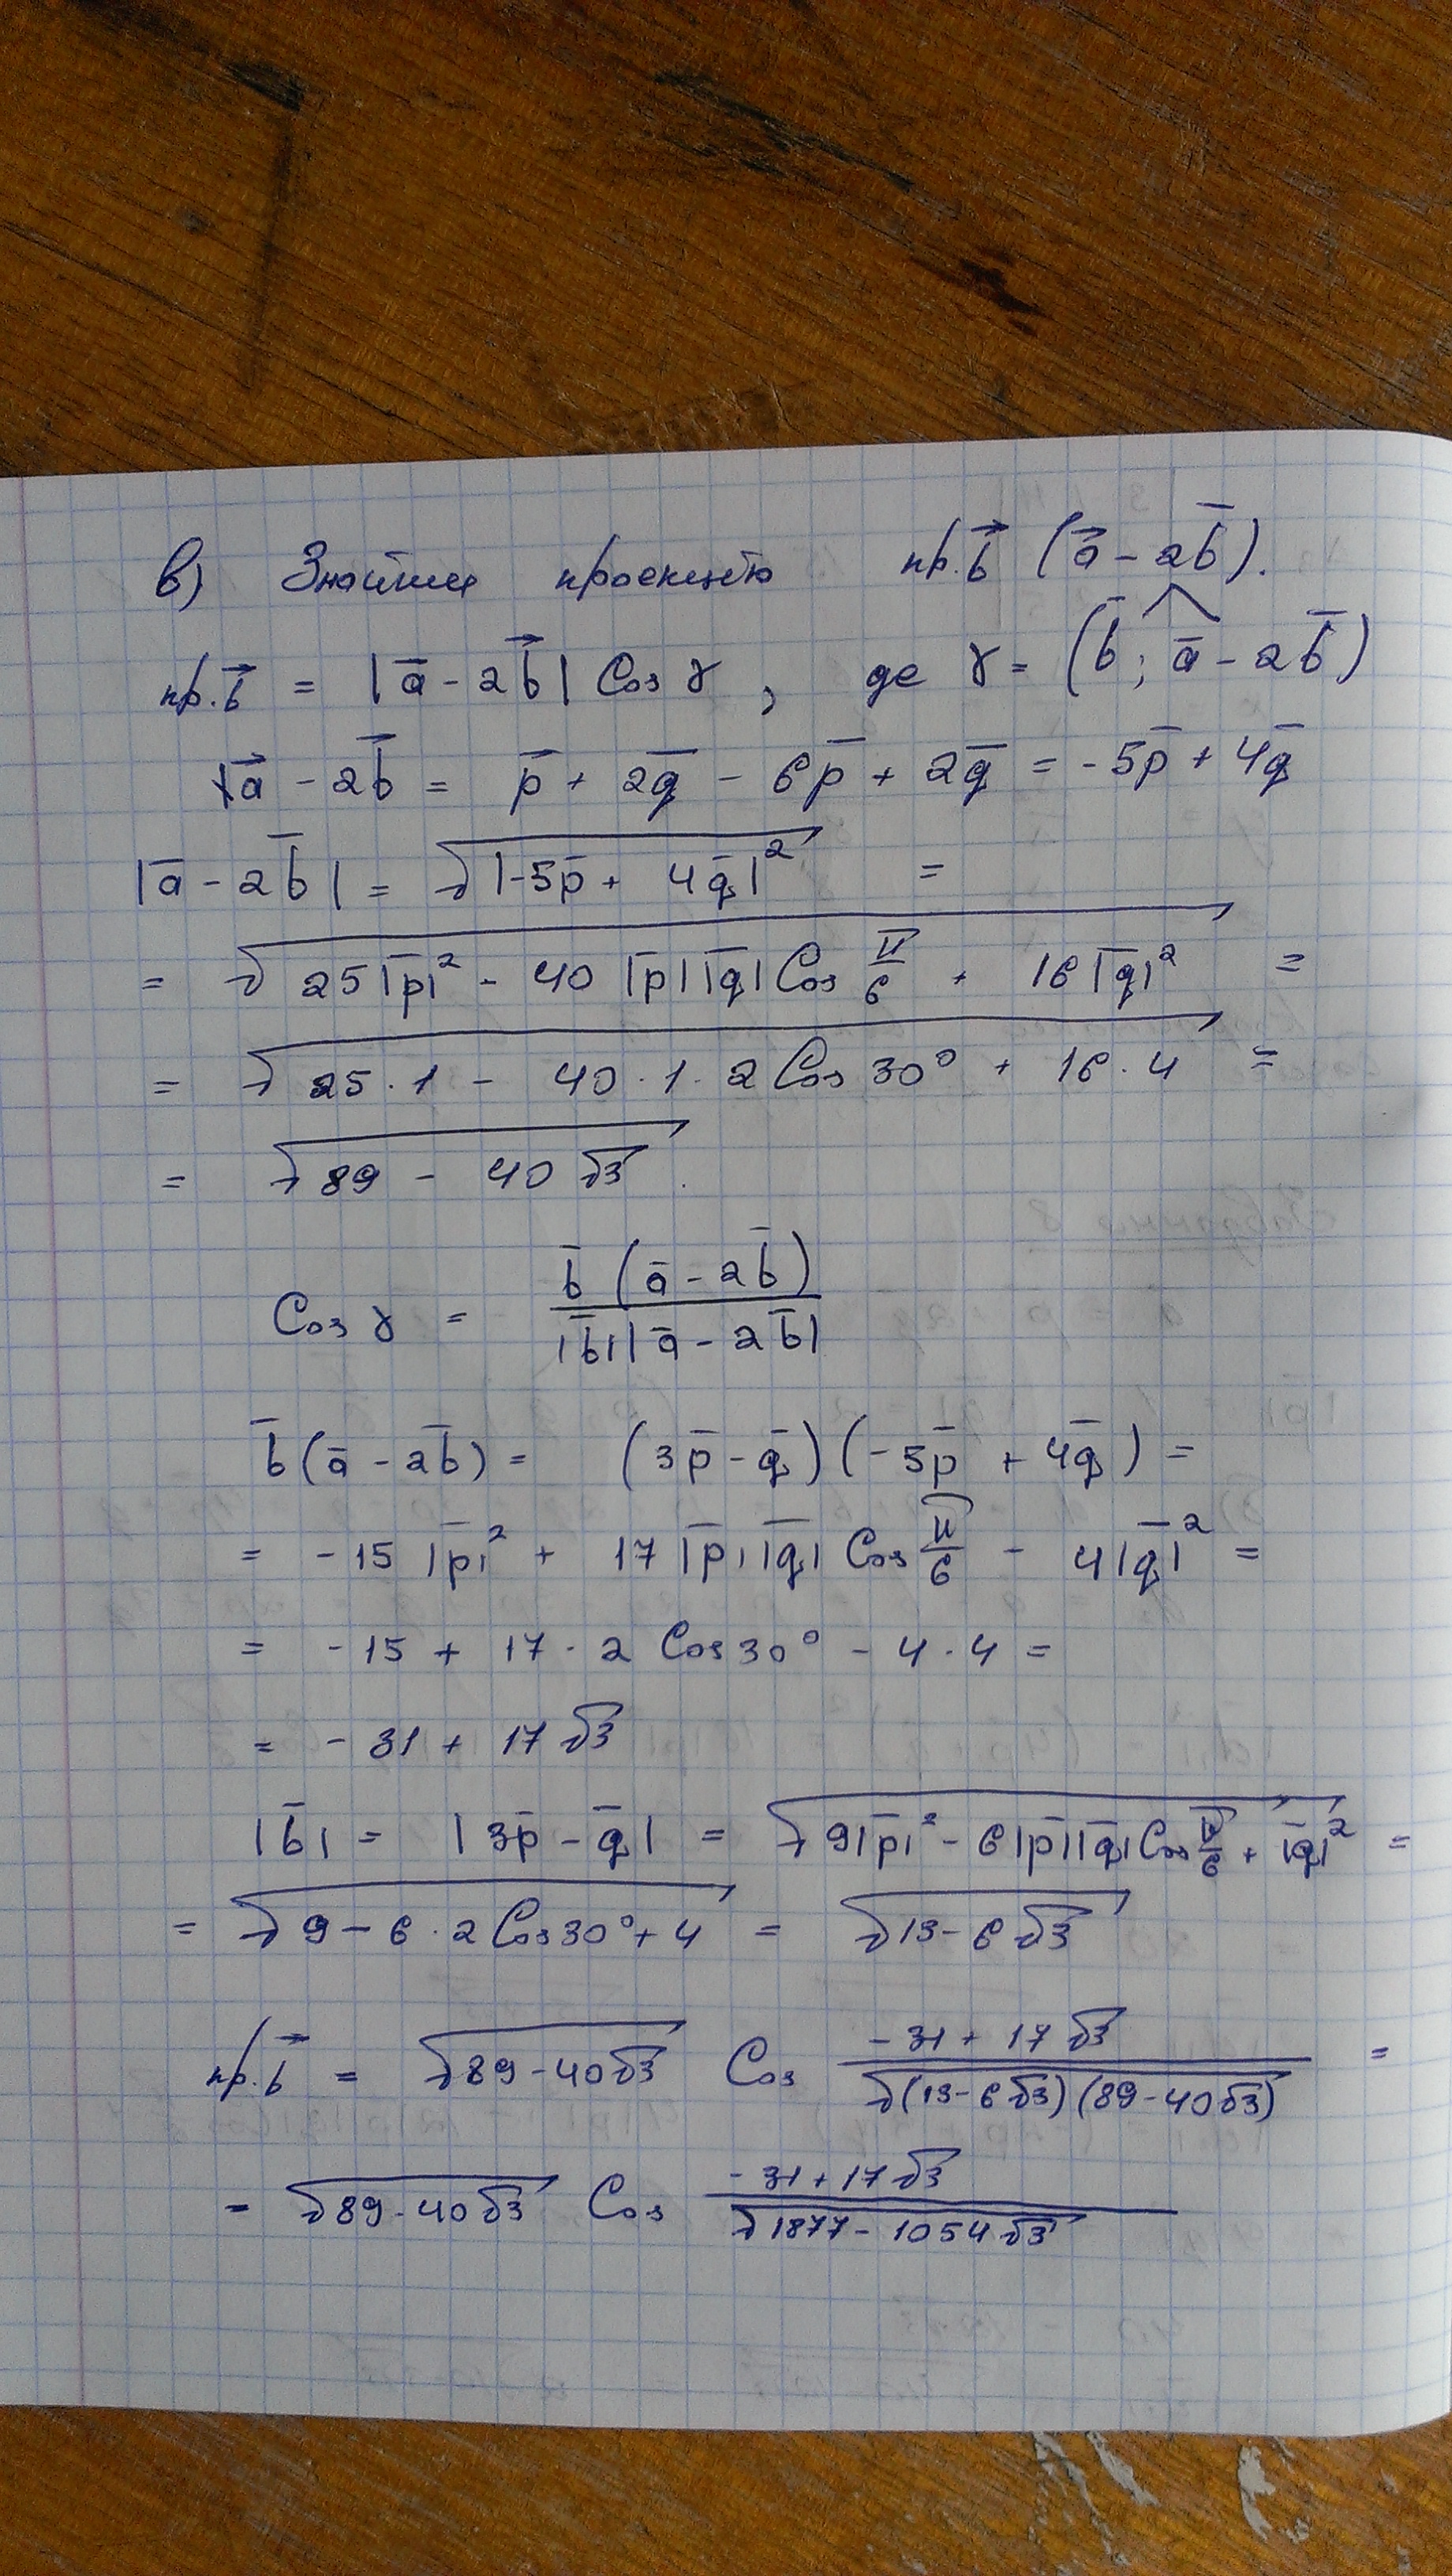 в) Знайти проекцію пр.b⃗ (a⃗ - 2b̅).
пр.b⃗ = |a̅ - 2b⃗| Cos γ , де γ = (b̅; a̅ - 2b̅)
a⃗ - 2b⃗ = p̅ + 2q̅ - 6p̅ + 2q̅ = -5p̅ + 4q̅
|a̅ - 2b̅| = √(|-5p̅ + 4q̅|²) =
= √(25|p̅|² - 40 |p̅||q̅| Cos π/6 + 16|q̅|²) =
= √(25·1 - 40·1·2 Cos 30° + 16·4) =
= √(89 - 40√3).
Cos γ = b̅(a̅ - 2b̅) / |b̅||a̅ - 2b̅|
b̅(a̅ - 2b̅) = (3p̅ - q̅)(-5p̅ + 4q̅) =
= -15 |p̅|² + 17 |p̅||q̅| Cos π/6 - 4|q̅|² =
= -15 + 17·2 Cos 30° - 4·4 =
= -31 + 17√3
|b̅| = |3p̅ - q̅| = √(9|p̅|² - 6|p̅||q̅| Cos π/6 + |q̅|²) =
= √(9 - 6·2 Cos 30° + 4) = √(13 - 6√3)
пр.b⃗ = √(89 - 40√3) Cos (-31 + 17√3) / √((13 - 6√3)(89 - 40√3)) =
= √(89 - 40√3) Cos (-31 + 17√3) / √(1877 - 1054√3)